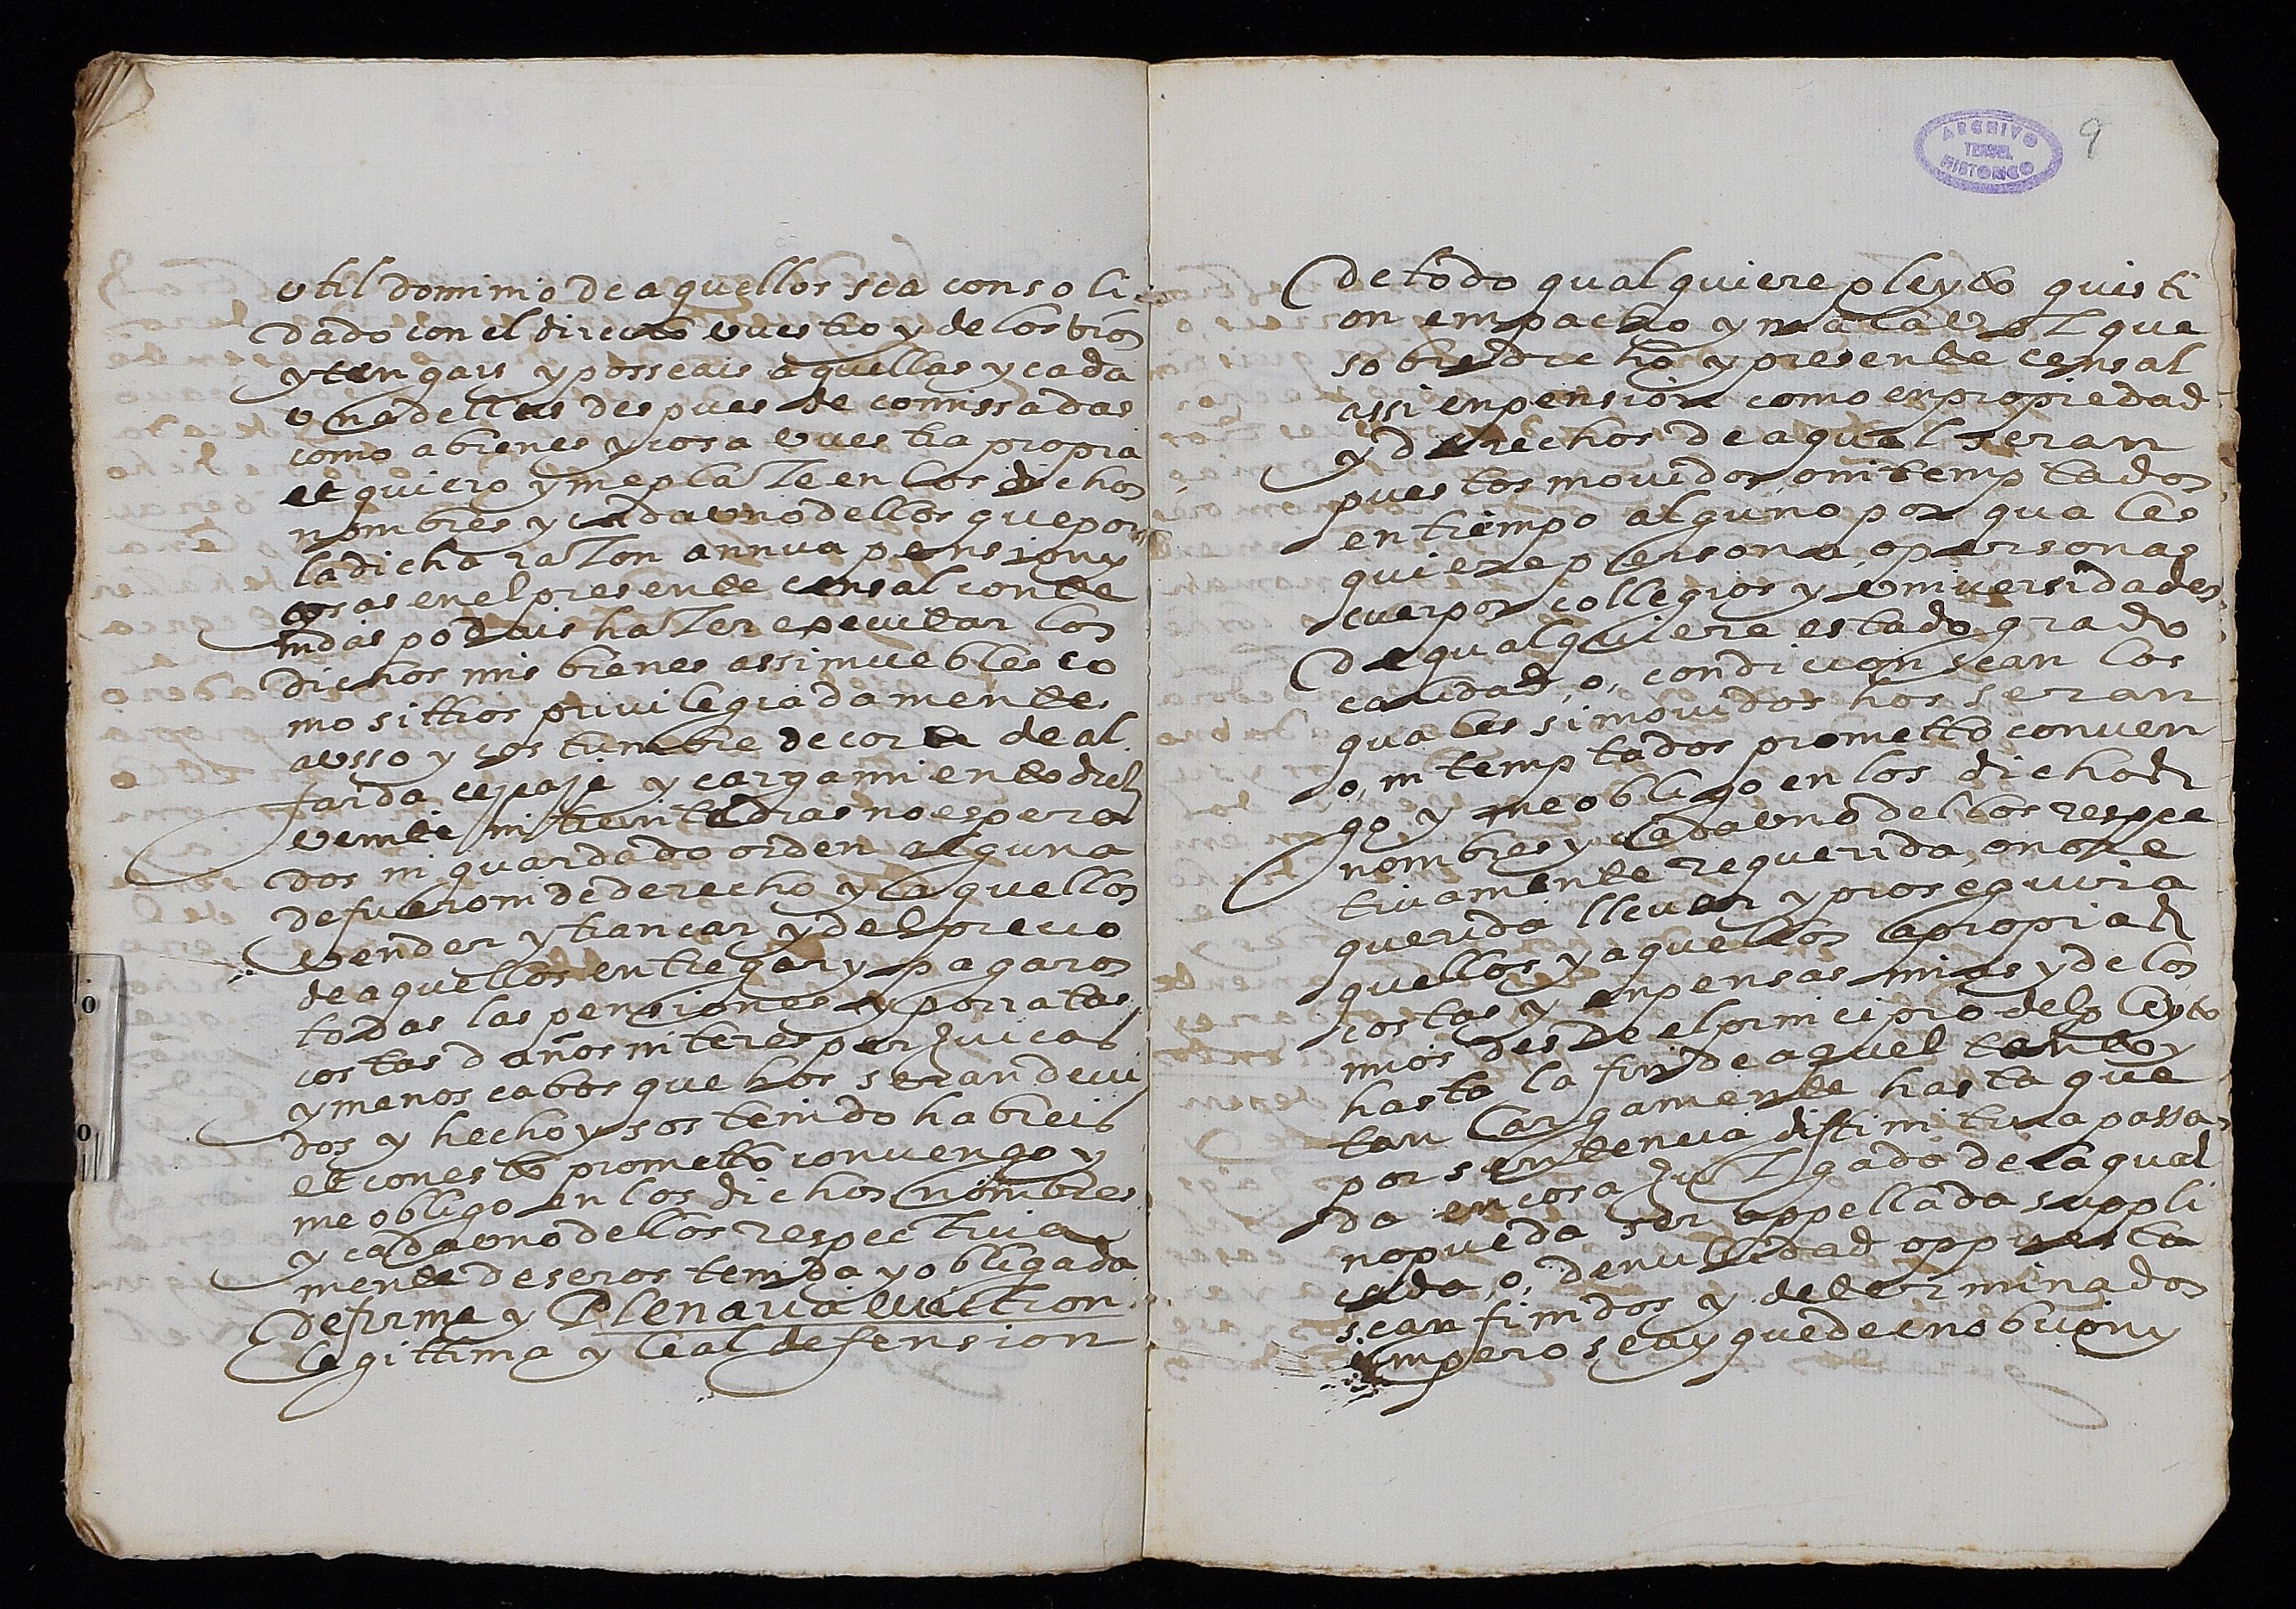 vtil dominio de aquellos sea consoli
dado con el directo vuestro y de los vros
y tengais y posseais aquellas y cada
vna dellas despues de comissadas
como a bienes y cosa vuestra propia
et quiero y me plaze en los dichos
nombres y cada vno dellos que por
la dicha razon annua pension y
cosas en el presente censal conte
nidas podais hazer executar los
dichos mis bienes assi muebles co
mo sittios priuilegiadamente
a vsso y costumbre de corte de al
farda cequiaje y cargamiento diez
veinte ni treinta dias no espera
dos ni guardado orden alguna
de fuero ni de derecho y aquellos
vender y trancar y del precio
de aquellos entregar y pagaros
todas las pensiones y porratas
costas daños interes perjuicas
y menoscabos que hos seran deui
dos y hecho y sostenido habreis
et con esto prometo conuengo y
me obligo en los dichos nombres
y cada vno dellos respectiua
mente de seros tenida y obligada
de firme y Plenaria euiction
legittima y leal defension
ARCHIVO
TERUEL
HISTORICO
9
de todo qualquiere pleyto questi
on empacho y mala voz que
sobre dicho y presente censal
assi en pension como en propiedad
y derechos de aquel seran
puestos mouidos o intemptados
en tiempo alguno por quales
quiere persona, o personas
cuerpos collegios y vniuersidades
de qualquiere estado grado
calidad, o, condicion sean los
quales si mouidos hos seran
o, intemptados prometto conuen
go y me obligo en los dichos
nombres y cada vno dellos respec
tiuamente requerida, o no re
querida lleuar y proseguir a
quellos y aquellos a propias
costas y expensas mias y de los
mios desde el principio del pleyto
hasta la fin de aquel tanto y
tan largamente hasta que
por sentencia diffinitiua passa
da en cosa juzgado de la qual
no pueda ser appellada suppli
cada, o, de nullidad oppuesta
sean finidos y determinados
empero sea y quede en obcion y